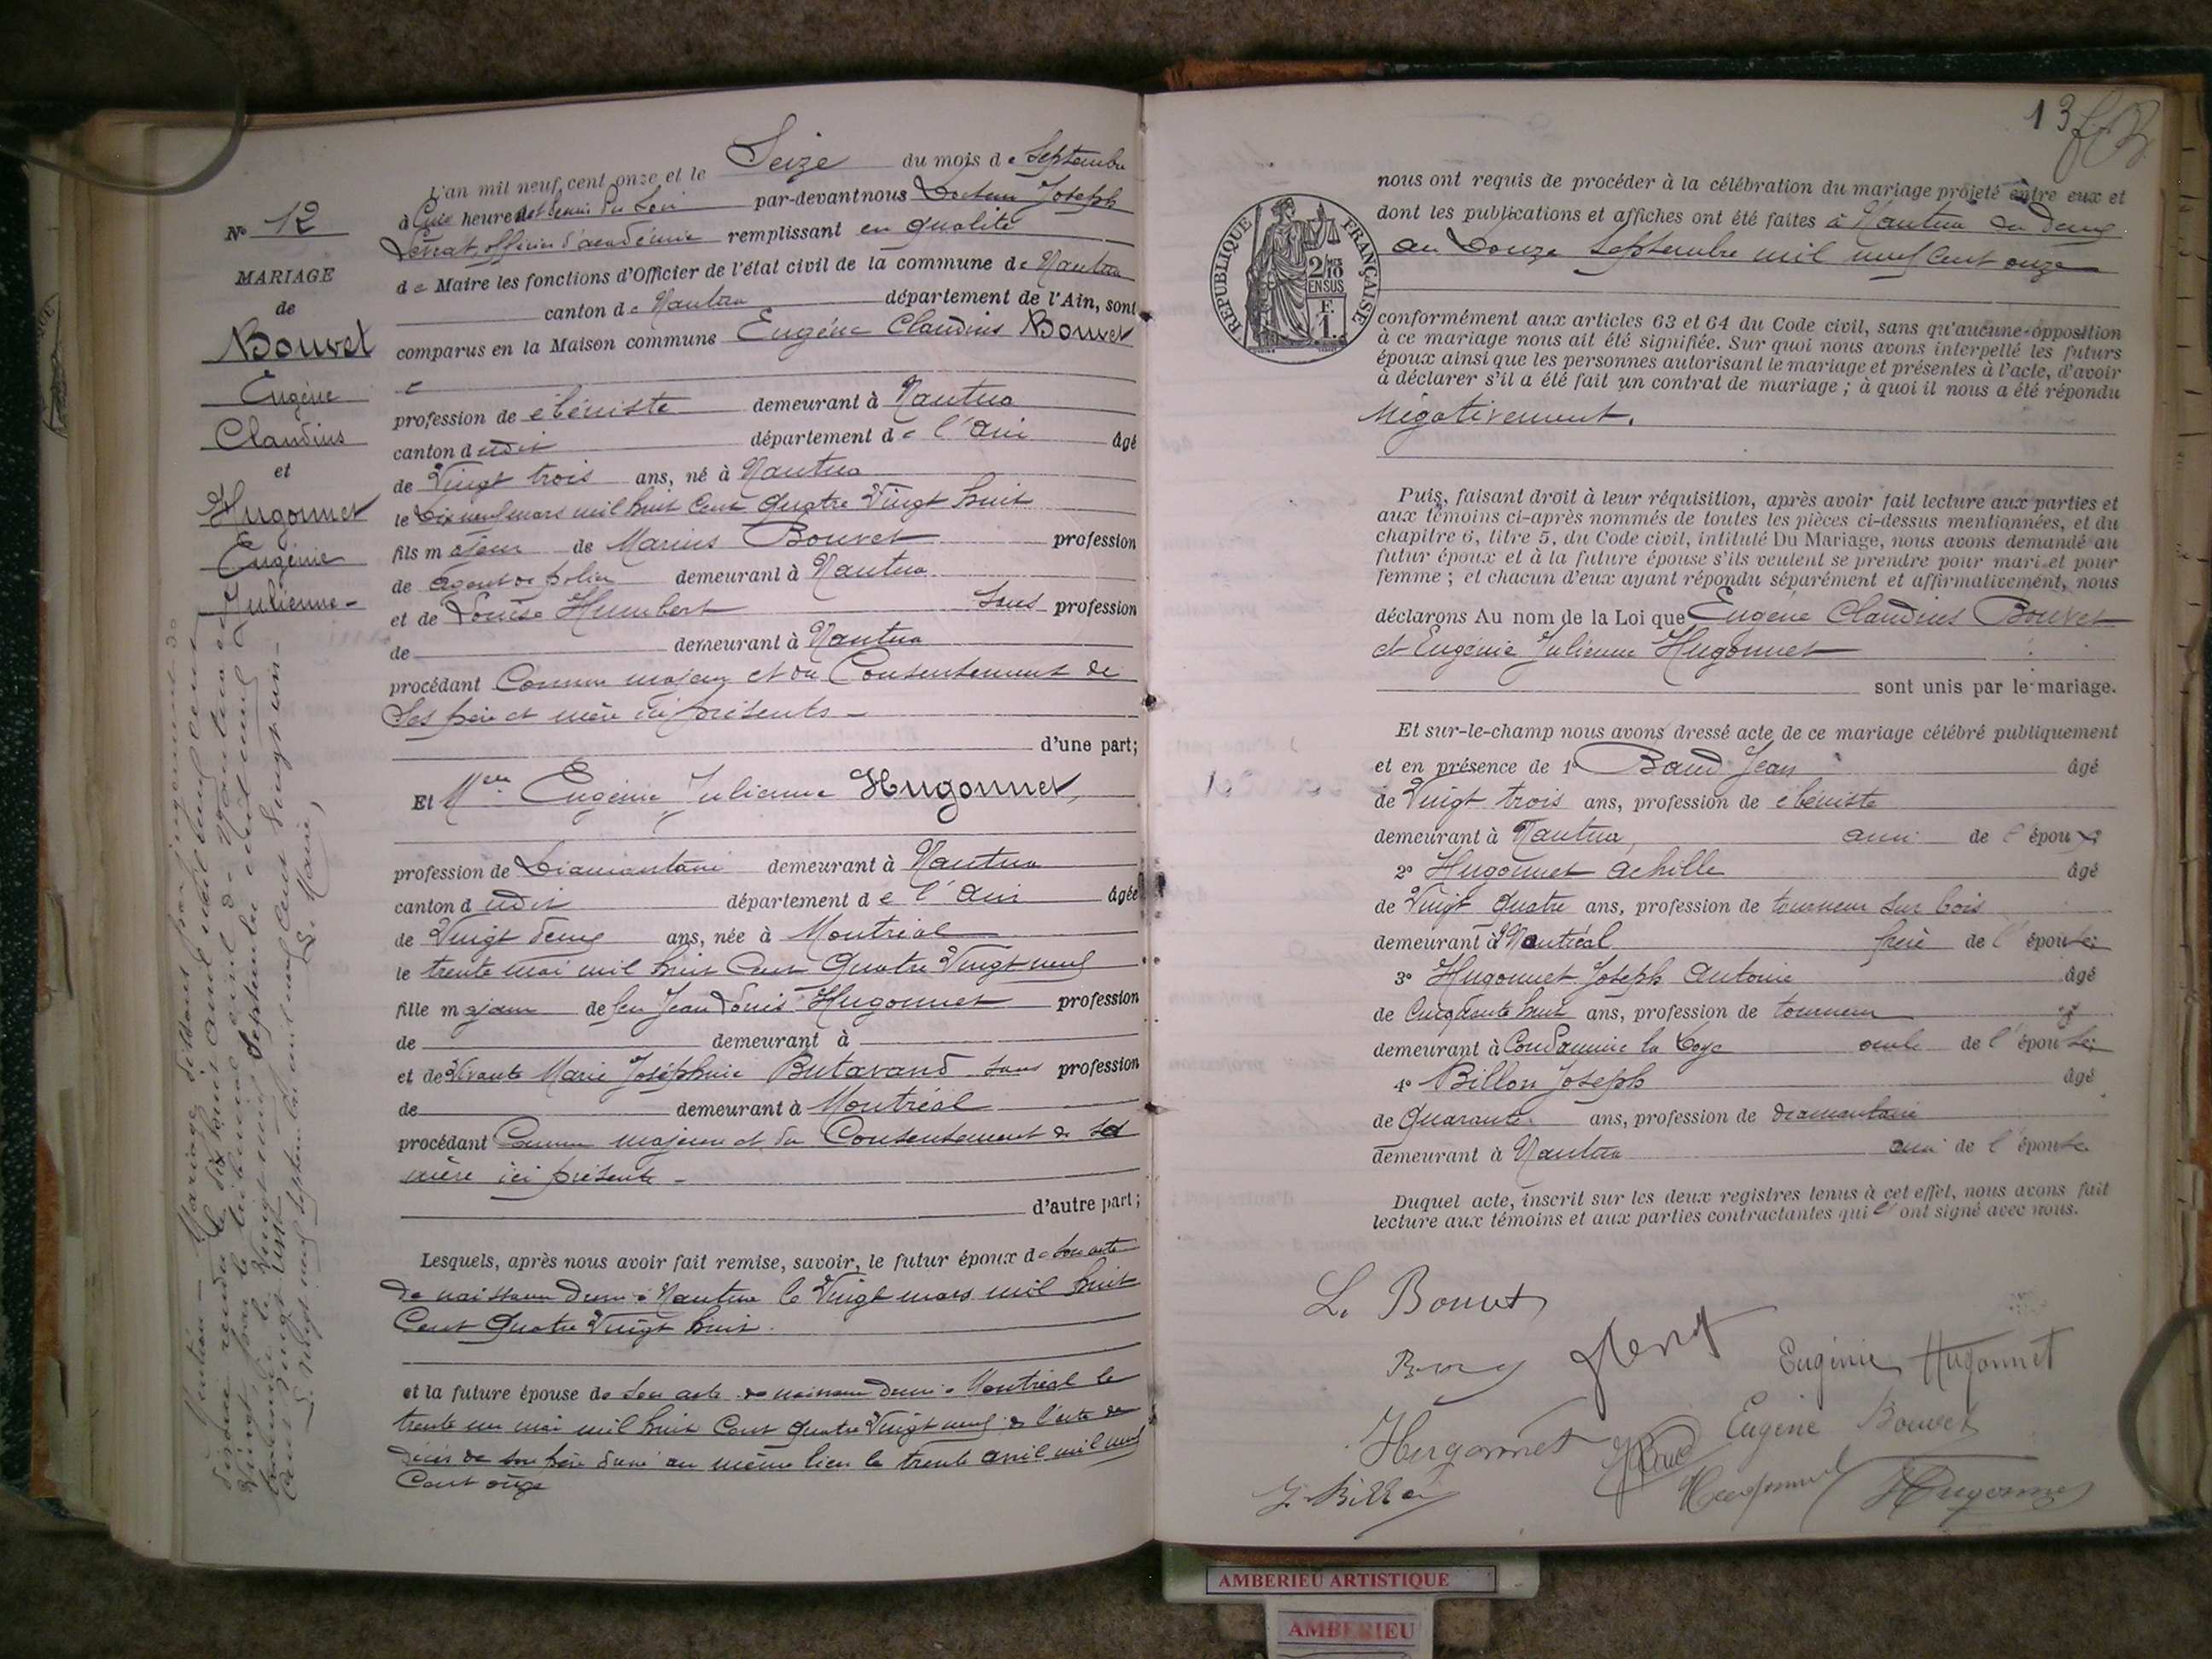 L'an mil neuf cent onze et le Seize du mois de Septembre
à heures et demie du Soir par-devant nous Docteur Joseph
officier d'académie remplissant en qualité
de Maire les fonctions d'Officier de l'état civil de la commune de Nantua
canton de Nantua département de l'Ain, sont
comparus en la Maison commune Eugène Claudius Bouvet
profession de ébéniste demeurant à Nantua
canton dudit département de l'Ain âgé
de Vingt trois ans, né à Nantua
le Dix neuf mars mil huit Cent Quatre Vingt huit
fils majeur de Marius Bouvet profession
de agent de police demeurant à Nantua
et de Louise Humbert Sans profession
de demeurant à Nantua
procédant Comme majeur et du Consentement de
Ses père et mère ici présents
d'une part;
Et Melle Eugénie Julienne Hugonnet,
profession de Diamantaire demeurant à Nantua
canton dudit département de l'Ain âgée
de Vingt deux ans, née à Montréal
le trente mai mil huit Cent Quatre Vingt neuf
fille majeure de feu Jean Louis Hugonnet profession
de demeurant à
et de Vivante Marie Joséphine Butavand sans profession
de demeurant à Montréal
procédant Comme majeure et du Consentement de sa
mère ici présente
d'autre part;
Lesquels, après nous avoir fait remise, savoir, le futur époux de Son acte
de naissance dressé à Nantua le Vingt mars mil huit
Cent Quatre Vingt huit
et la future épouse de Son acte de naissance dressé à Montréal le
trente un mai mil huit Cent Quatre Vingt neuf & l'acte de
décès de son père dressé au même lieu le trente avril mil neuf
Cent onze
No 12
MARIAGE
de
Bouvet
Eugène
Claudius
et
Hugonnet
Eugénie
Julienne
Mention - Mariage dissous par jugement de
divorce rendu le dix huit avril mil neuf cent
Vingt par le tribunal civil de Nantua et
transcrit le Vingt neuf Septembre mil neuf
Cent Vingt un
Le Vingt neuf Septembre mil neuf Cent Vingt un
Le Maire,
13
nous ont requis de procéder à la célébration du mariage projeté entre eux et
dont les publications et affiches ont été faites à Nantua du deux
au Douze Septembre mil neuf Cent onze
RÉPUBLIQUE FRANÇAISE
2/10
EN SUS
1 F.
conformément aux articles 63 et 64 du Code civil, sans qu'aucune opposition
à ce mariage nous ait été signifiée. Sur quoi nous avons interpellé les futurs
époux ainsi que les personnes autorisant le mariage et présentes à l'acte, d'avoir
à déclarer s'il a été fait un contrat de mariage ; à quoi il nous a été répondu
Négativement.
Puis, faisant droit à leur réquisition, après avoir fait lecture aux parties et
aux témoins ci-après nommés de toutes les pièces ci-dessus mentionnées, et du
chapitre 6, titre 5, du Code civil, intitulé Du Mariage, nous avons demandé au
futur époux et à la future épouse s'ils veulent se prendre pour mari et pour
femme ; et chacun d'eux ayant répondu séparément et affirmativement, nous
déclarons Au nom de la Loi que Eugène Claudius Bouvet
et Eugénie Julienne Hugonnet
sont unis par le mariage.
Et sur-le-champ nous avons dressé acte de ce mariage célébré publiquement
et en présence de 1º Baud Jean âgé
de Vingt trois ans, profession de ébéniste
demeurant à Nantua, ami de l'époux
2º Hugonnet Achille âgé
de Vingt Quatre ans, profession de tourneur Sur bois
demeurant à Montréal frère de l'épouse;
3º Hugonnet Joseph Antoine âgé
de Cinquante huit ans, profession de tourneur
demeurant à Condamine la Doye oncle de l'épouse;
4º Billon Joseph âgé
de Quarante ans, profession de diamantaire
demeurant à Nantua ami de l'épouse
Duquel acte, inscrit sur les deux registres tenus à cet effet, nous avons fait
lecture aux témoins et aux parties contractantes qui ont signé avec nous.
L. Bouvet
Eugénie Hugonnet
Hugonnet
JBaud
Eugène Bouvet
J. Billon
Hugonnet
Hugonnet
AMBERIEU ARTISTIQUE
AMBERIEU